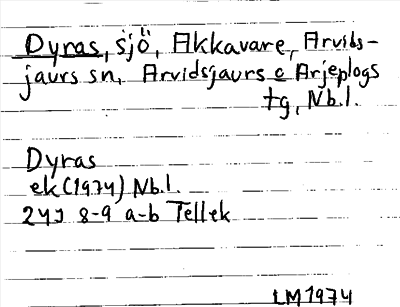 Dyras, sjö, Akkavare, Arvids-
jaurs sn, Arvidsjaurs o Arjeplogs
tg, Nb.l.
Dyras
ek (1974) Nb.l.
24J 8-9 a-b Tellek
LM 1974